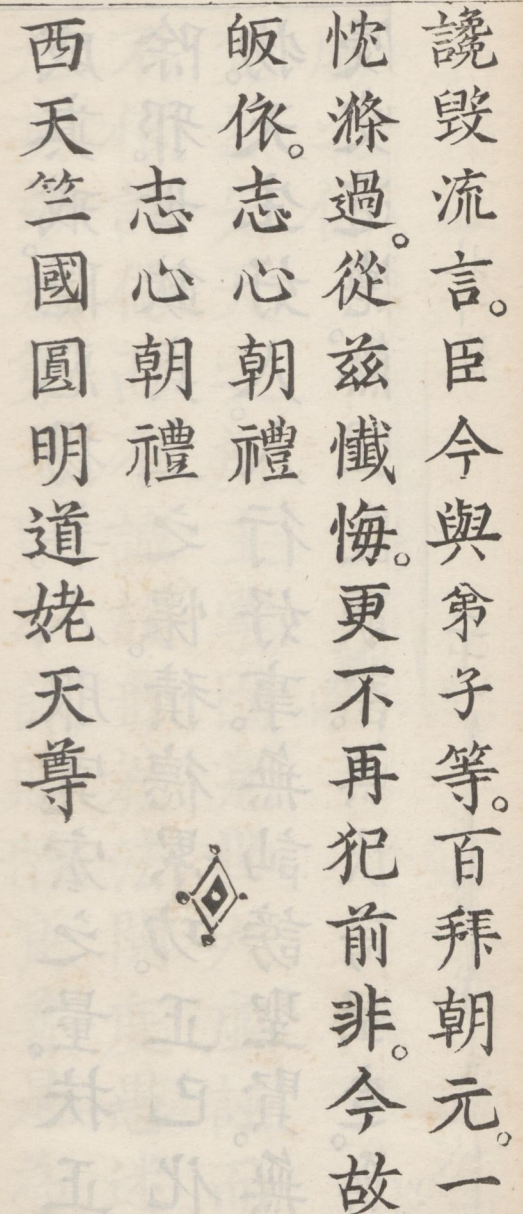 讒毀流言。臣今與弟子等。百拜朝元。一
忱滌過。從茲懺悔。更不再犯前非。今故
皈依。志心朝禮
志心朝禮
西天竺國圓明道姥天尊